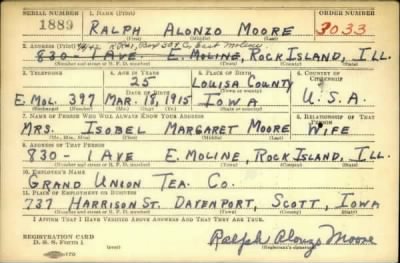 SERIAL NUMBER 1. NAME (Print) ORDER NUMBER
1889 RALPH ALONZO MOORE 3033
(First) (Middle) (Last)
2. ADDRESS (Print)
830 - 1 AVE E. MOLINE, ROCK ISLAND, ILL.
(Number and street or R. F. D. number) (Town) (County) (State)
3. TELEPHONE 4. AGE IN YEARS 5. PLACE OF BIRTH 6. COUNTRY OF CITIZENSHIP
25 LOUISA COUNTY
DATE OF BIRTH (Town or county)
E. MOL. 397 MAR. 18, 1915 IOWA U.S.A.
(Exchange) (Number) (Mo.) (Day) (Yr.) (State or country)
7. NAME OF PERSON WHO WILL ALWAYS KNOW YOUR ADDRESS 8. RELATIONSHIP OF THAT PERSON
MRS. ISOBEL MARGARET MOORE WIFE
(Mr., Mrs., Miss) (First) (Middle) (Last)
9. ADDRESS OF THAT PERSON
830 - 1 AVE E. MOLINE, ROCK ISLAND, ILL.
(Number and street or R. F. D. number) (Town) (County) (State)
10. EMPLOYER'S NAME
GRAND UNION TEA. CO.
11. PLACE OF EMPLOYMENT OR BUSINESS
737 HARRISON ST. DAVENPORT, SCOTT, IOWA
(Number and street or R. F. D. number) (Town) (County) (State)
I AFFIRM THAT I HAVE VERIFIED ABOVE ANSWERS AND THAT THEY ARE TRUE.
REGISTRATION CARD
D. S. S. Form 1
Ralph Alonzo Moore
(Registrant's signature)